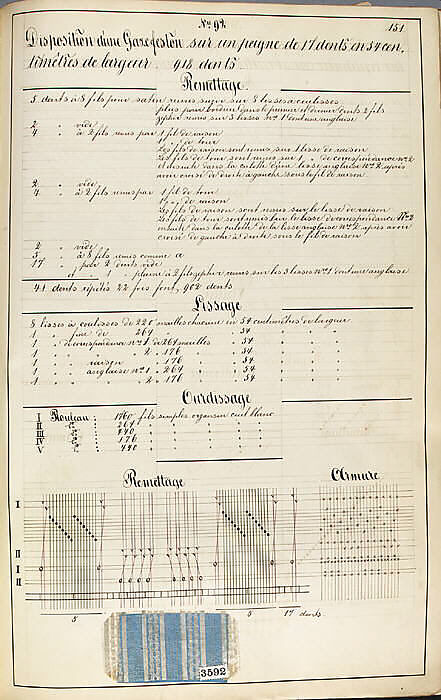 No 92.
151
Disposition d'une Gaze feston sur un peigne de 17 dents en 54 cen,
timètres de largeur 918 dents
Remettage.
5 dents à 8 fils pour satin remis suivi sur 8 lisses à coulisses
plus pour bordure dans le premier et dernier dents 2 fils
zephir remis sur 3 lisses No 1 denture anglaise
2 " vide
4 " à 2 fils remis par 1 fil de raison
1 " de tour
Les fils de raison sont remis sur 1 lisse de raison
Les fils de tour sont remis sur 1 " de correspondance No 2
et ensuite dans la culotte d'une lisse anglaise No 2, après
avoir croisé de droite à gauche sous le fil de raison
2 " vide
4 " à 2 fils remis par 1 fil de tour
1 " de raison
Les fils de raison sont remis sur la lisse de raison
Les fils de tour sont remis sur la lisse de correspondance No 2
ensuite dans la culotte de la lisse anglaise No 2 après avoir
croisé de gauche à droite sous le fil de raison
2 " vide
5 " à 8 fils remis comme a
17 " pour 2 dents vide
" " 1 " pleine à 2 fils zephir remis sur les 3 lisses No 1 denture anglaise
41 dents répétés 22 fois font, 902 dents
Lissage
8 lisses à coulisses de 220 mailles chacune en 54 centimètres de largeur
1 " de 264 " " 54 "
1 " de correspondance No 1 de 264 mailles " 54 "
1 " " 2 " 176 " " 54 "
1 " raison " 176 " " 54 "
1 " anglaise No 1 " 264 " " 54 "
1 " " 2 " 176 " " 54 "
Ourdissage
I Rouleau : 1760 fils simples organsin cuit blanc
II " 264 " " " " "
III " 440 " " " " "
IV " 176 " " " " "
V " 440 " " " " "
Remettage
Armure
I
II
I
II
5
5
17 dents.
3592